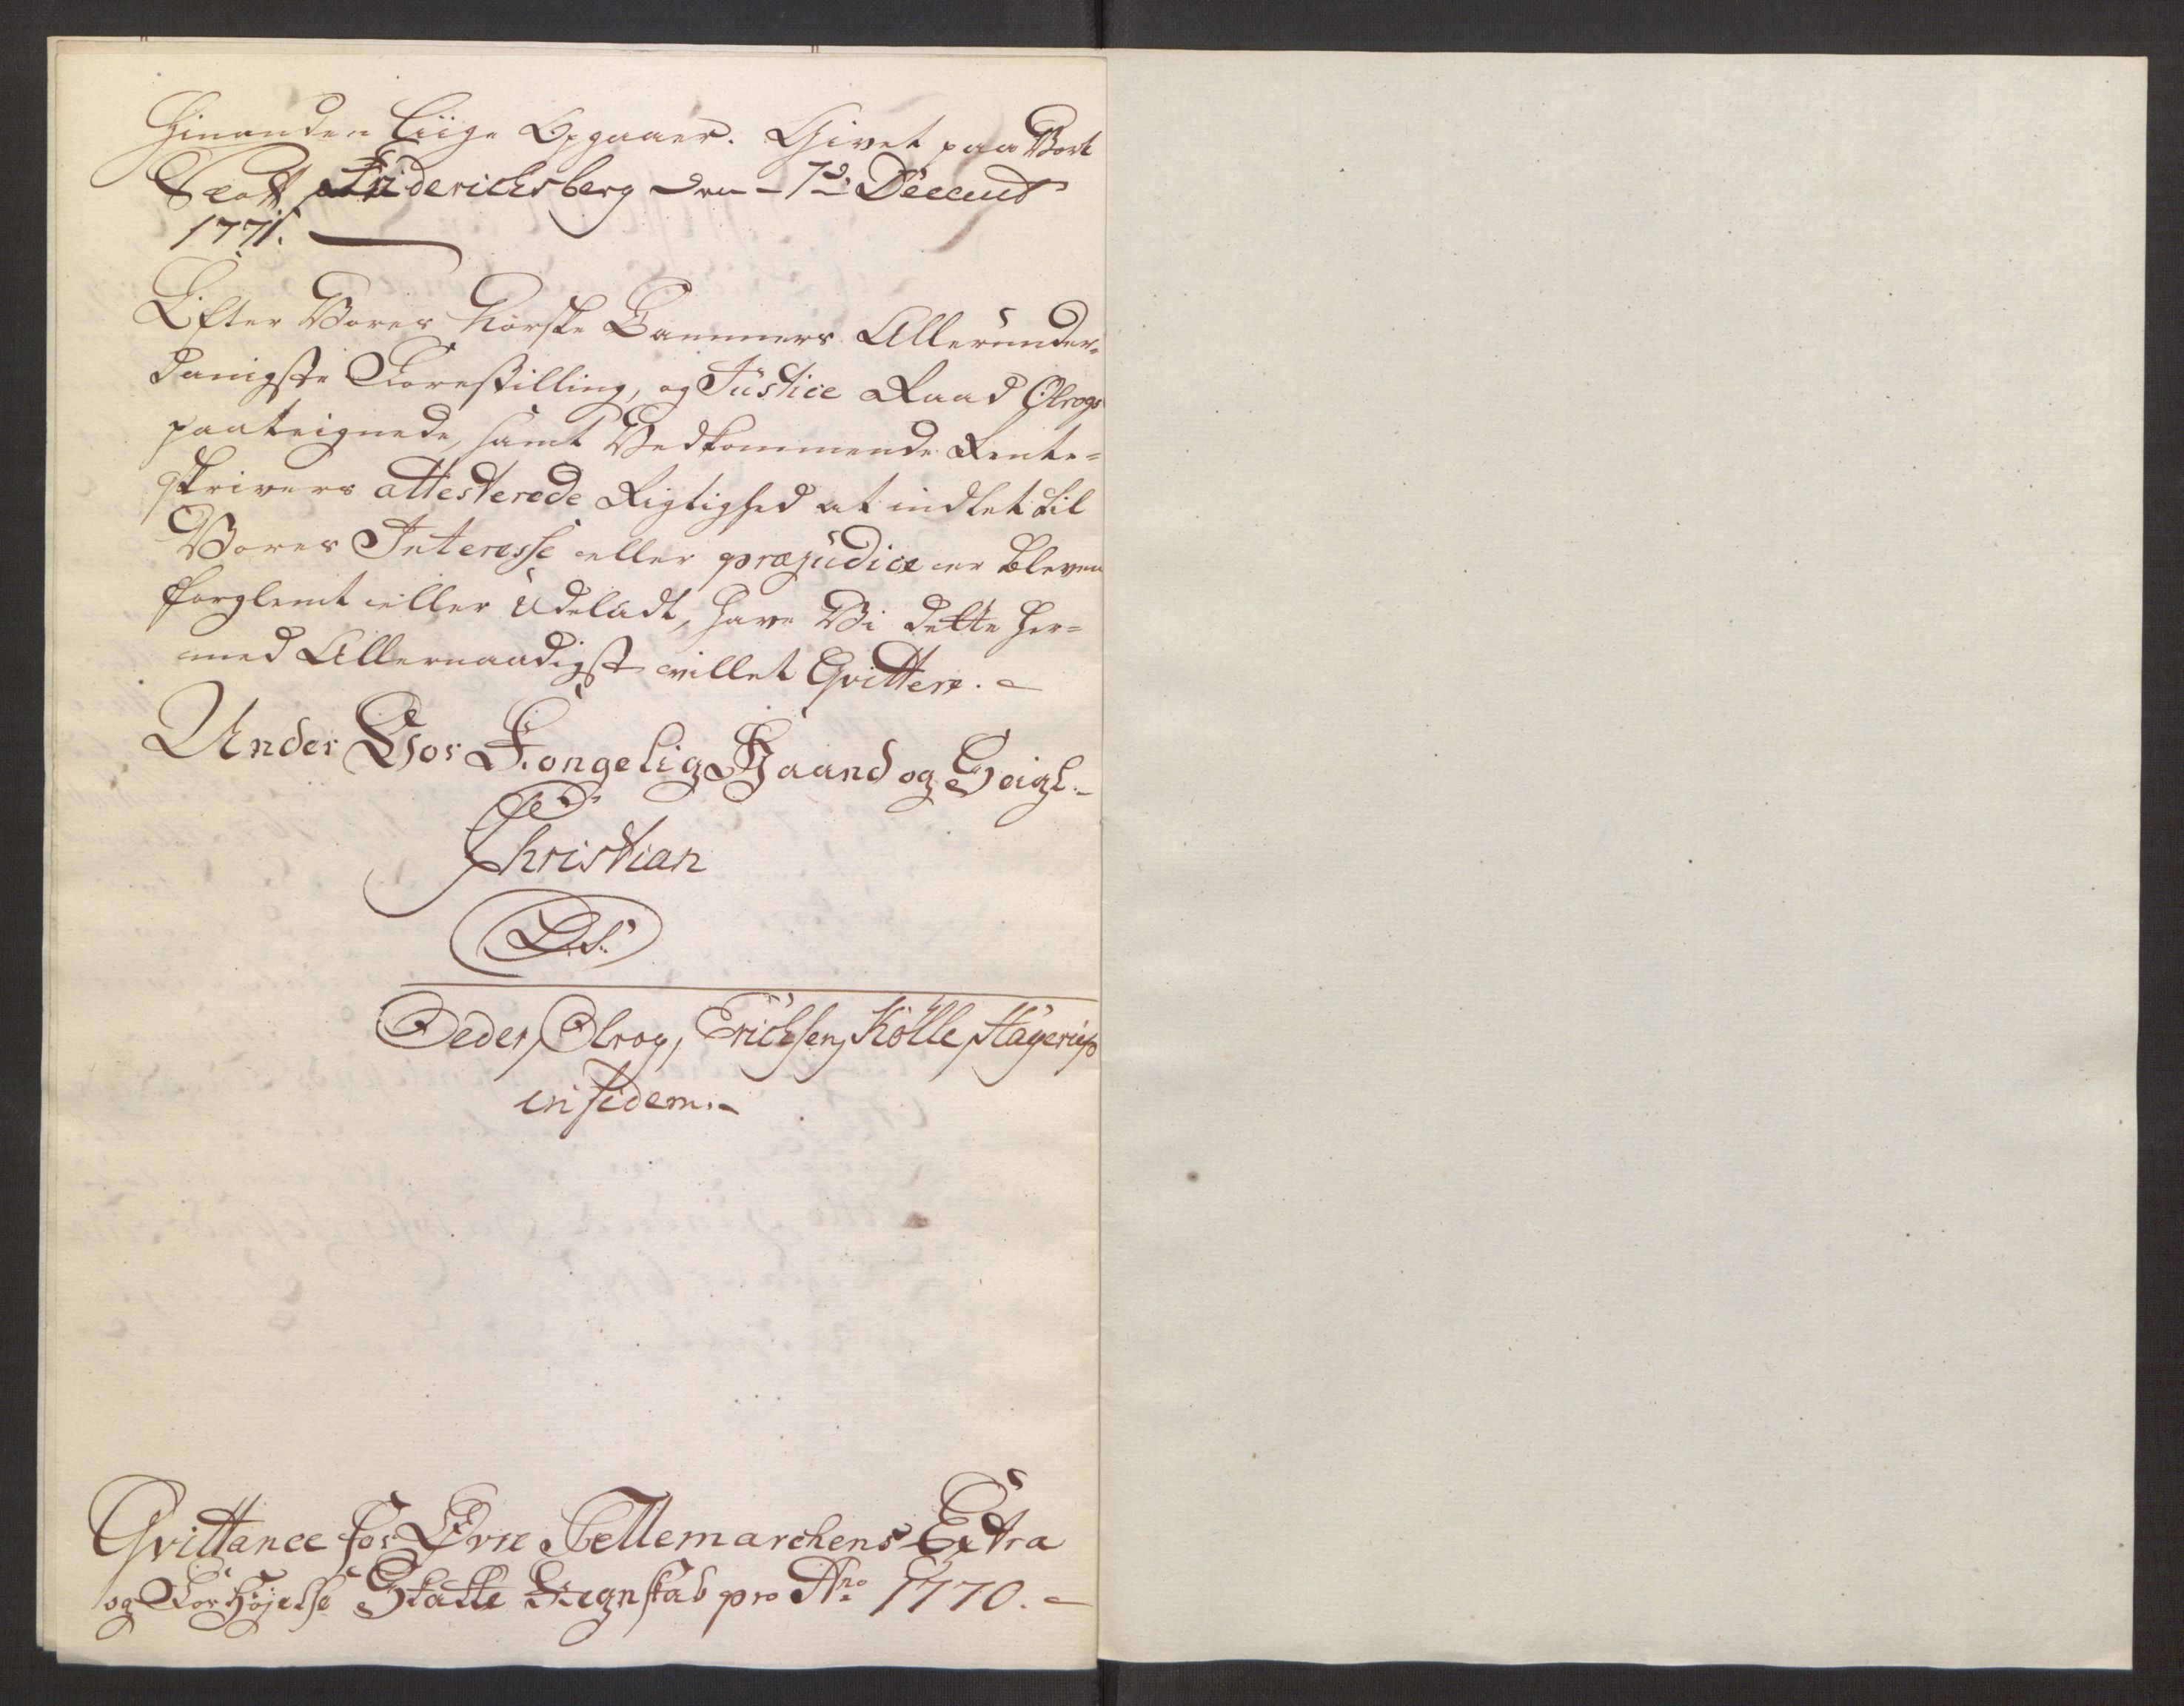 Hinanden liige Opgaaer. Givet paa Vort
Slott Friderichsberg den 7de Decemb
1771.
Efter Vores Norske Cammers Allerunder-
danigste Forestilling, og Justice Raad Olrogs
paateignede, samt Vedkommende Rente-
skrivers attesterede Rigtighed at indtet til
Vores Interesse eller præjudice er bleven
forglemt eller udeladt, have Vi dette her-
med Allernaadigst villet Qvittere.
Under Vor Kongelig Haand og Seigl.
Christian
L.S.
Oeder, Olrog, Erichsen, Kölle, Hagerup
in fidem.
Qvittance for Øvre Tellemarchens Extra
og Forhøjelse Skatte Regnskab pro Ano 1770.